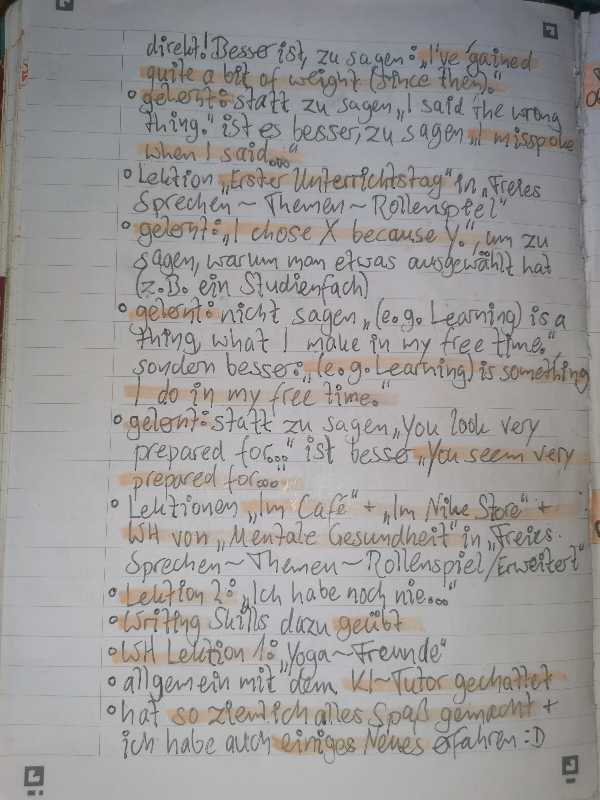 direkt! Besser ist, zu sagen: „I've gained
quite a bit of weight (since then)."
• gelernt: statt zu sagen „I said the wrong
thing." ist es besser, zu sagen „I misspoke
when I said..."
• Lektion „Erster Unterrichtstag" in „Freies
Sprechen ~ Themen ~ Rollenspiel"
• gelernt: „I chose X because Y.", um zu
sagen, warum man etwas ausgewählt hat
(z.B. ein Studienfach)
• gelernt: nicht sagen „(e.g. Learning) is a
thing what I make in my free time.",
sondern besser: „(e.g. Learning) is something
I do in my free time."
• gelernt: statt zu sagen „You look very
prepared for..." ist besser „You seem very
prepared for..."
• Lektionen „Im Café" + „Im Nike Store" +
WH von „Mentale Gesundheit" in „Freies
Sprechen ~ Themen ~ Rollenspiel/Erweitert"
• Lektion 2: „Ich habe noch nie..."
• Writing Skills dazu geübt
• WH Lektion 1: „Yoga ~ Freunde"
• allgemein mit dem KI~Tutor gechattet
• hat so ziemlich alles Spaß gemacht +
ich habe auch einiges Neues erfahren :D